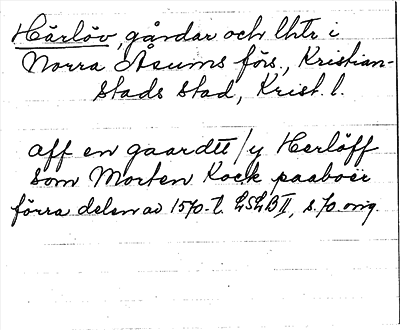 Härlöv, gårdar och lhtr i
Norra Åsums förs., Kristian-
stads stad, Krist. l.
aff en gaardtt / y Herlöff
som Morten Kock paaboer
förra delen av 1570-t. LSLB II, s. 70. orig.